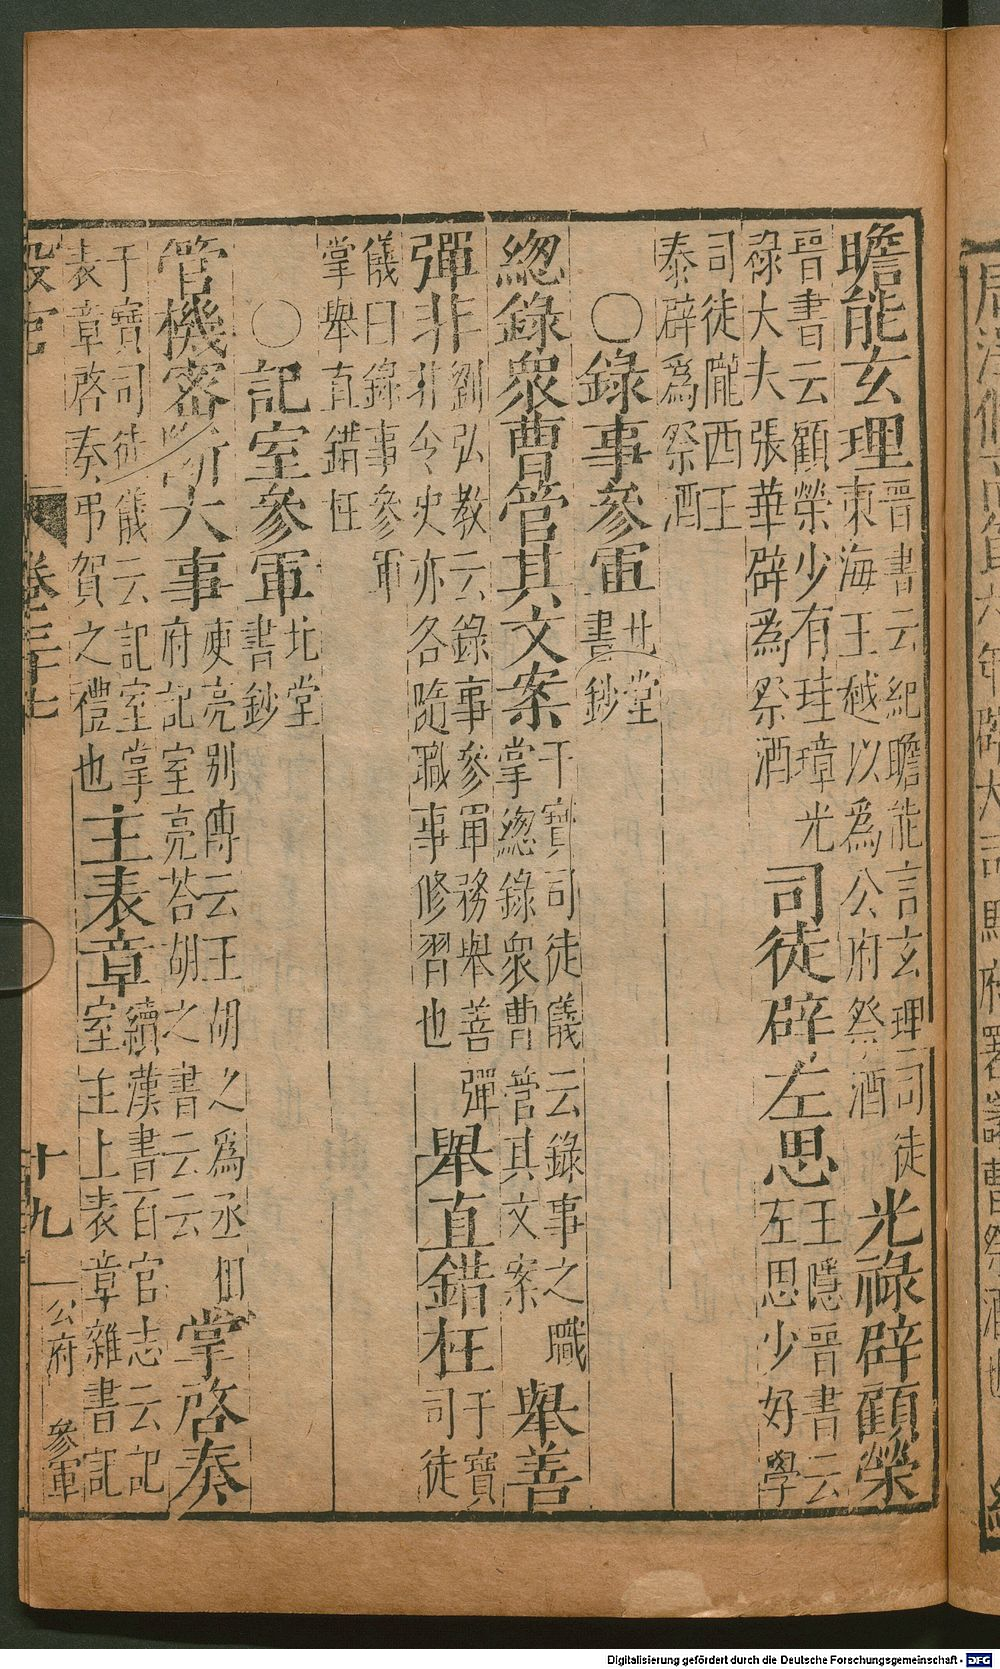 瞻能玄理 晉書云紀瞻能言玄理司徒東海王越以為公府祭酒 光祿辟顧榮
晉書云顧榮少有珪璋光祿大夫張華辟為祭酒 司徒辟左思 王隱晉書云左思少好學
司徒隴西王泰辟為祭酒
○錄事參軍 北堂書鈔
總錄衆曹管其文案 干寶司徒儀云錄事之職掌總錄衆曹管其文案 舉善
彈非 劉弘教云錄事參軍務舉善彈非非令史亦各隨職事修習也 舉直錯枉 于寶司徒
儀曰錄事參軍掌舉直錯枉
○記室參軍 北堂書鈔
管機密斷大事 庾亮別傳云王胡之為丞相府記室亮荅胡之書云云 掌啓奏
于寶司徒儀云記室掌表章啓奏弔賀之禮也 主表章 續漢書百官志云記室主上表章雜書記
設官 卷三十七 十九 公府 參軍
Digitalisierung gefördert durch die Deutsche Forschungsgemeinschaft - DFG